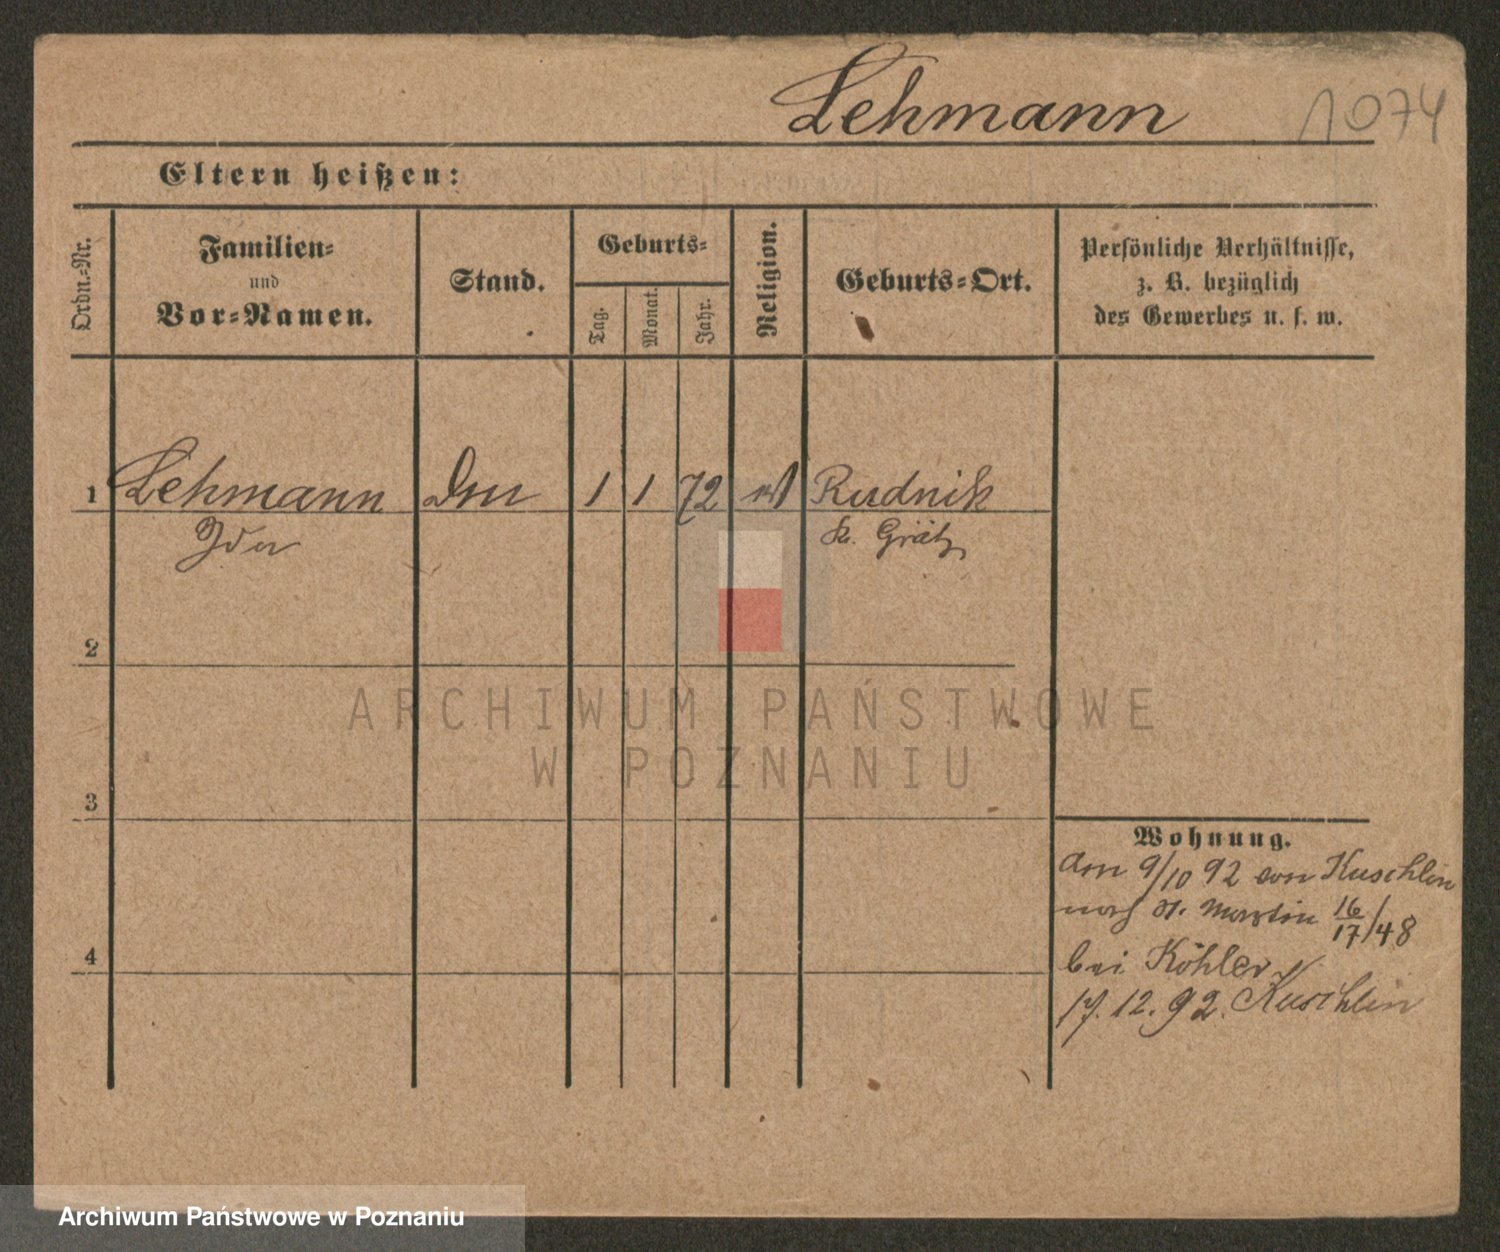 Lehmann 1074
Eltern heißen:
Ordn.-Nr.
Familien-
und
Vor-Namen.
Stand.
Geburts-
Tag.
Monat.
Jahr.
Religion.
Geburts-Ort.
Persönliche Verhältnisse,
z. B. bezüglich
des Gewerbes u. s. w.
1 Lehmann 1 1 72 Rudnik
Ida Kr. Grätz
2
3
4
Wohnung.
am 9/10 92 von Kuschlin
nach St. Martin 16/17/48
bei Köhler
17. 12. 92. Kuschlin
ARCHIWUM PAŃSTWOWE
W POZNANIU
Archiwum Państwowe w Poznaniu